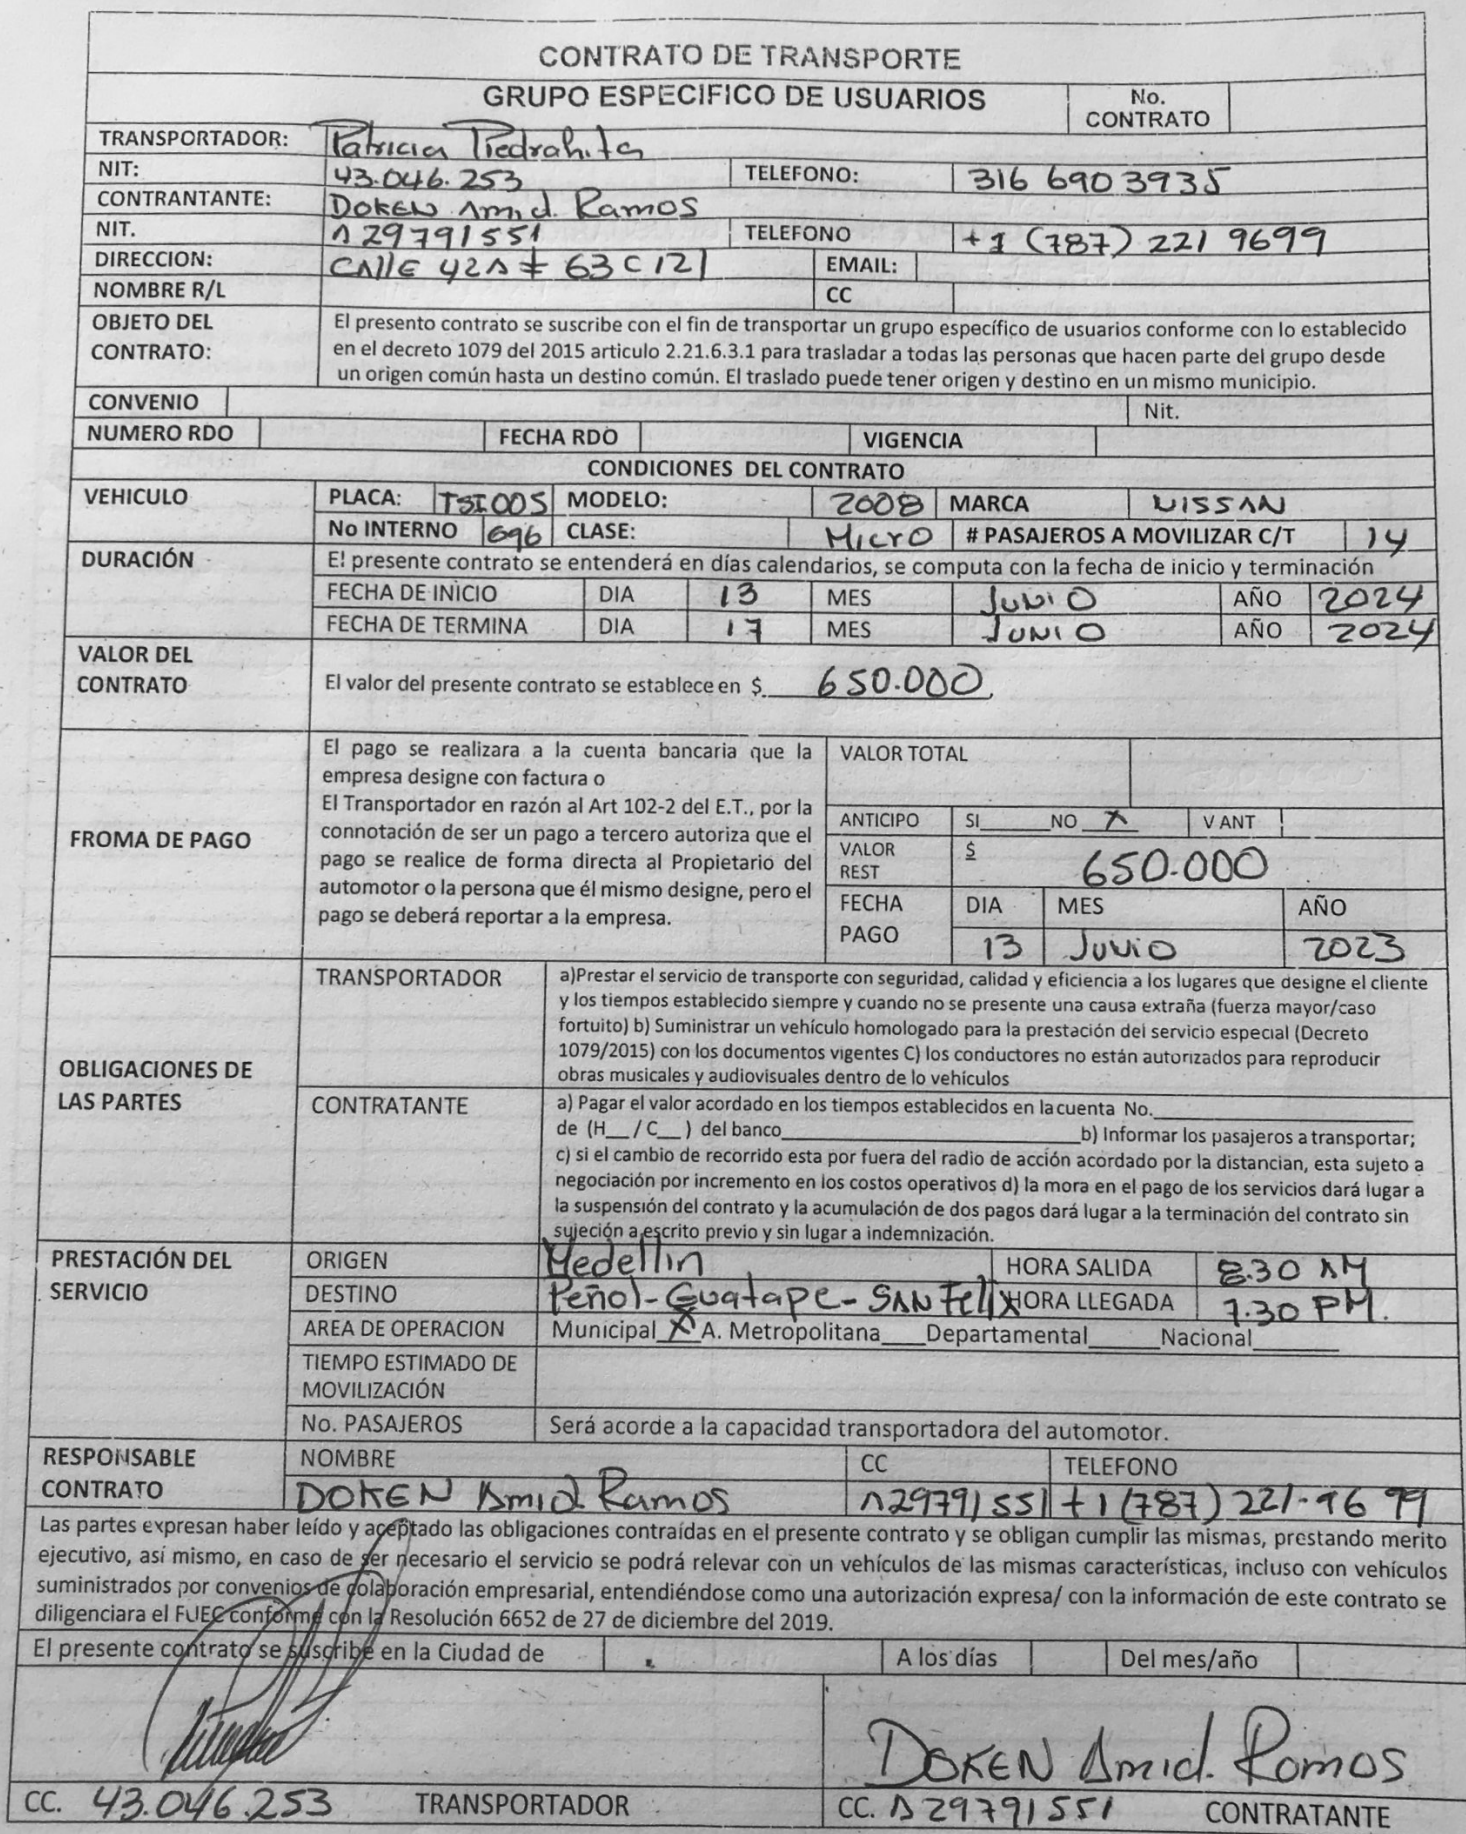 CONTRATO DE TRANSPORTE
GRUPO ESPECIFICO DE USUARIOS No. CONTRATO
TRANSPORTADOR: Patricia Piedrahita
NIT: 43.046.253 TELEFONO: 316 690 3935
CONTRANTANTE: DOKEN Amid. Ramos
NIT. A29791551 TELEFONO +1 (787) 221 9699
DIRECCION: CAllE 42A # 63 C 121 EMAIL:
NOMBRE R/L CC
OBJETO DEL CONTRATO: El presento contrato se suscribe con el fin de transportar un grupo específico de usuarios conforme con lo establecido
en el decreto 1079 del 2015 articulo 2.21.6.3.1 para trasladar a todas las personas que hacen parte del grupo desde
un origen común hasta un destino común. El traslado puede tener origen y destino en un mismo municipio.
CONVENIO Nit.
NUMERO RDO FECHA RDO VIGENCIA
CONDICIONES DEL CONTRATO
VEHICULO PLACA: TSI005 MODELO: 2008 MARCA NISSAN
No INTERNO 696 CLASE: Micro # PASAJEROS A MOVILIZAR C/T 14
DURACIÓN El presente contrato se entenderá en días calendarios, se computa con la fecha de inicio y terminación
FECHA DE INICIO DIA 13 MES JUNIO AÑO 2024
FECHA DE TERMINA DIA 17 MES JUNIO AÑO 2024
VALOR DEL CONTRATO El valor del presente contrato se establece en $ 650.000
FROMA DE PAGO
El pago se realizara a la cuenta bancaria que la
empresa designe con factura o
El Transportador en razón al Art 102-2 del E.T., por la
connotación de ser un pago a tercero autoriza que el
pago se realice de forma directa al Propietario del
automotor o la persona que él mismo designe, pero el
pago se deberá reportar a la empresa.
VALOR TOTAL
ANTICIPO SI____NO X V ANT
VALOR REST $ 650.000
FECHA PAGO DIA MES AÑO
13 JUNIO 2023
OBLIGACIONES DE LAS PARTES
TRANSPORTADOR a)Prestar el servicio de transporte con seguridad, calidad y eficiencia a los lugares que designe el cliente
y los tiempos establecido siempre y cuando no se presente una causa extraña (fuerza mayor/caso
fortuito) b) Suministrar un vehículo homologado para la prestación del servicio especial (Decreto
1079/2015) con los documentos vigentes C) los conductores no están autorizados para reproducir
obras musicales y audiovisuales dentro de lo vehículos
CONTRATANTE a) Pagar el valor acordado en los tiempos establecidos en la cuenta No.____
de (H__/C__) del banco____b) Informar los pasajeros a transportar;
c) si el cambio de recorrido esta por fuera del radio de acción acordado por la distancian, esta sujeto a
negociación por incremento en los costos operativos d) la mora en el pago de los servicios dará lugar a
la suspensión del contrato y la acumulación de dos pagos dará lugar a la terminación del contrato sin
sujeción a escrito previo y sin lugar a indemnización.
PRESTACIÓN DEL SERVICIO
ORIGEN Medellin HORA SALIDA 8:30 AM
DESTINO Peñol-Guatape-SAN Felix HORA LLEGADA 7:30 PM.
AREA DE OPERACION Municipal X A. Metropolitana____Departamental____Nacional____
TIEMPO ESTIMADO DE MOVILIZACIÓN
No. PASAJEROS Será acorde a la capacidad transportadora del automotor.
RESPONSABLE CONTRATO NOMBRE CC TELEFONO
DOKEN Amid Ramos A29791551 +1 (787) 221-9699
Las partes expresan haber leído y aceptado las obligaciones contraídas en el presente contrato y se obligan cumplir las mismas, prestando merito
ejecutivo, así mismo, en caso de ser necesario el servicio se podrá relevar con un vehículos de las mismas características, incluso con vehículos
suministrados por convenios de colaboración empresarial, entendiéndose como una autorización expresa/ con la información de este contrato se
diligenciara el FUEC conforme con la Resolución 6652 de 27 de diciembre del 2019.
El presente contrato se suscribe en la Ciudad de A los días Del mes/año
DOKEN Amid. Ramos
CC. 43.046.253 TRANSPORTADOR CC. A29791551 CONTRATANTE